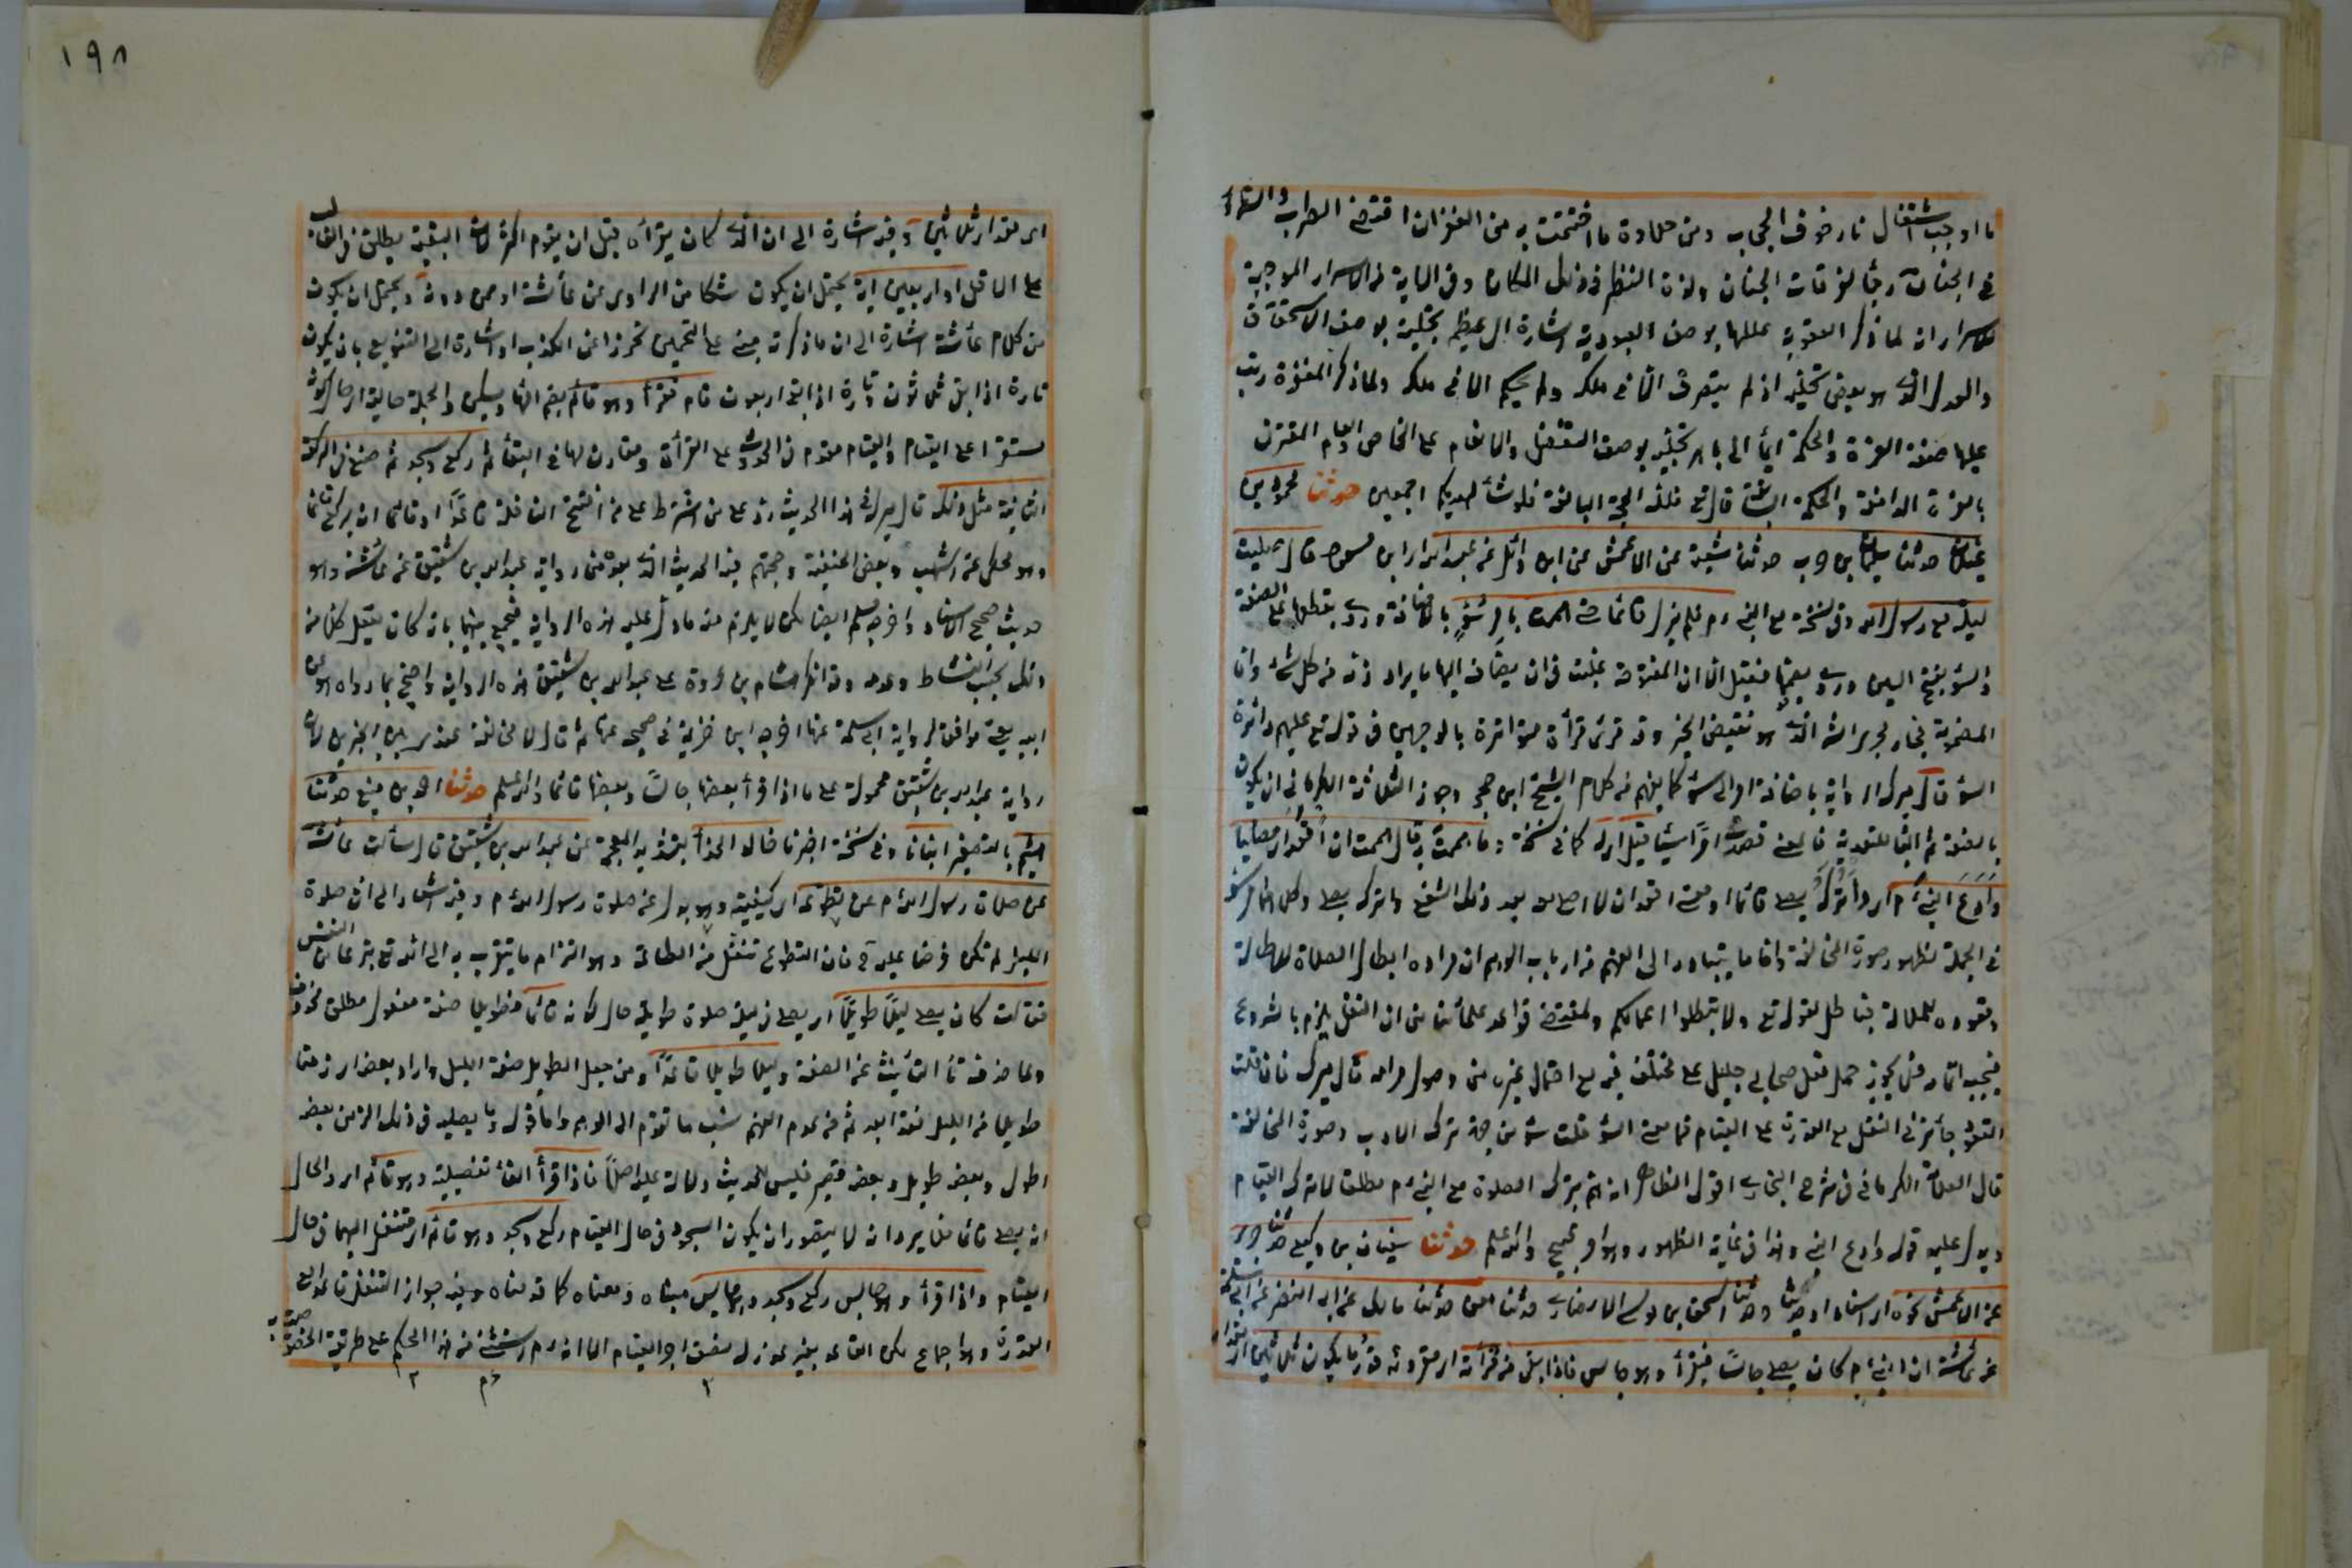 ما اوجب اشتعال نار خوف الحجاب ومن حلاوة ما اختتمت به من الغفران اقتضى الطرب والسرور
في الجنان رجاء لغرفات الجنان ولذة النظر في ذلك المكان وفي الاية من الاسرار الموجبة
للاسرار انه لما ذكر العقوبة عللها بوصف العبودية اشارة الى عظيم تجليه بوصف الاستحقاق
والعدل الذي هو بعض تجليه اذ لم يتصرف الا في ملكه ولم يحكم الا في ملكه ولما ذكر المغفرة رتب
عليها صفة العزة والحكمة ايماء الى باهر تجليه بوصف التفضل والانعام على الخاص والعام المقترن
بالعزة الدامغة والحكمة البالغة قال تع فلله الحجة البالغة فلو شاء لهديكم اجمعين حدثنا محمود بن
غيلان حدثنا سليمان بن حرب حدثنا شعبة عن الاعمش عن ابى وائل عن عبد الله اى ابن مسعود قال صليت
ليلة مع رسول الله وفي نسخة مع النبي ءم فلم يزل قائما حتى هممت بامر سوء بالاضافة وروى بقطعها على الصفة
والسوء بفتح السين وروى بضمها فقيل الا ان المفتوحة غلبت في ان يضاف اليها ما يراد ذمه من كل شئ واما
المضمومة فجار مجرى الشر الذى هو نقيض الخير وقد قرئ قراءة متواترة بالوجهين في قوله تع عليهم دائرة
السوء قال ميرك الرواية باضافة امر الى سوء كما يفهم من كلام الشيخ ابن حجر وجوز العلامة الكرمانى ان يكون
بالصفة ثم الباء للتعدية فالمعنى قصدت امرا سيئا قيل له كما في نسخة وما هممت به قال هممت ان اقعد اى مصليا
وادع النبي ءم اى واتركه يصلى قائما او معنى اقعد ان لا اصلى معه بعد ذلك الشفع واتركه يصلى وكلاهما امر سوء
في الجملة لظهور صورة المخالفة واما ما يتبادر الى الفهم من ارباب الوهم ان مراده ابطال الصلاة للاطالة
وقعوده للملالة فباطل لقوله تع ولا تبطلوا اعمالكم ولمقتضى قواعد علمائنا من ان النفل يلزم بالشروع
فيجب اتمامه فلا يجوز حمل فعل صحابى جليل على مختلف فيه مع احتمال غيره من وصول مرامه قال ميرك فان قلت
القعود جائز في النفل مع القدرة على القيام فما معنى السوء قلت سوء من جهة ترك الادب وصورة المخالفة
قال العلامة الكرمانى في شرح البخارى اقول الظاهر انه هم بترك الصلاة مع النبي ءم مطلقا لا بترك القيام
ويدل عليه قوله وادع النبي وهذا في غاية الظهور وهو امر قبيح والله اعلم حدثنا سفيان بن وكيع حدثنا جرير
عن الاعمش نحوه اى اسنادا وحديثا وحدثنا اسحق بن موسى الانصارى حدثنا معن حدثنا مالك عن ابى النضر عن ابى سلمة
عن عائشة ان النبي ءم كان يصلى جالسا فيقرأ وهو جالس فاذا بقى من قراءته اى مقروئه قدر ما يكون ثلاثين اى مقدار
١٩٨
اى مقدار ثلاثين آية وفيه اشارة الى ان الذى كان يقرأه قبل ان يقوم اكثر لان البقية يطلق في الغالب
على الاقل او اربعين آية يحتمل ان يكون شكا من الراوى عن عائشة او ممن دونه ويحتمل ان يكون
من كلام عائشة اشارة الى ان ما ذكرته مبني على التخمين تحرزا عن الكذب او اشارة الى التنويع بان يكون
تارة اذا بقى ثلاثون وتارة اذا بقى اربعون قام فقرأ وهو قائم بضم الهاء ويسكن والجملة حالية اى حال كونه
مستقرا على القيام والقيام مقدم في الحدوث على القراءة ومقارن لها في البقاء ثم ركع وسجد ثم صنع في الركعة
الثانية مثل ذلك قال ميرك في هذا الحديث رد على من اشترط على من افتتح النافلة قاعدا ان يركع قاعدا او قائما ان يركع قائما
وهو محكى عن اشهب وبعض الحنفية وحجتهم فيه الحديث الذى بعد هذا من رواية عبد الله بن شقيق عن عائشة وهو
حديث صحيح الاسناد واخرجه مسلم ايضا لكن لا يلزم منه ما دل عليه هذه الرواية فيجمع بينهما بانه كان يفعل كلا من
ذلك بحسب النشاط وعدمه وقد انكر هشام بن عروة على عبد الله بن شقيق هذه الرواية واحتج بما رواه هو عن
ابيه يعنى موافقة لرواية ابى سلمة عنها اخرجه ابن خزيمة في صحيحه عنها ثم قال لا مخالفة عندى بين الخبرين لان
رواية عبد الله بن شقيق محمولة على ما اذا قرأ بعضها جالسا وبعضها قائما والله اعلم حدثنا احمد بن منيع حدثنا
هشيم بالتصغير انبانا وفي نسخة اخبرنا خالد الحذاء بتشديد المعجمة عن عبد الله بن شقيق قال سألت عائشة
عن صلاة رسول الله ءم عن تطوعه اى كيفيته وهو بدل عن صلوة رسول الله ءم وفيه اشعار الى ان صلوة
الليل لم تكن فرضا عليه ح فان التطوع تنفل من الطاعة وهو التزام ما يتقرب به الى الله تع تبرعا من النفس
فقالت كان يصلى ليلا طويلا اى يصلى في ليلة صلوة طويلة حال كونه قائما فطويلا صفة مفعول مطلق محذوف
ولما حذف تاء التأنيث عن الصفة وليلا طويلا قاعدا ومن جعل الطويل صفة الليل واراد بعضا اى زمنا
طويلا من الليل فقد ابعد ثم من عدم الفهم نسب ما تقدم الى الوهم واما قوله وما يصليه في ذلك الزمن بعضه
اطول وبعضه طويل وبعضه قصير فليس للحديث دلالة عليه اصلا فاذا قرأ الفاء تفصيلية وهو قائم اى والحال
انه يصلى قائما فلا يرد انه لا يتصور ان يكون السجود في حال القيام ركع وسجد وهو قائم اى منتقل اليهما في حال
القيام واذا قرأ وهو جالس ركع وسجد وهو جالس مبناه ومعناه كما قدمناه وفيه جواز التنفل قاعدا مع
القدرة وهو اجماع لكن القاعد بغير عذر له نصف اجر القيام الا انه ءم استثنى من هذا الحكم على طريقة الخصوصية